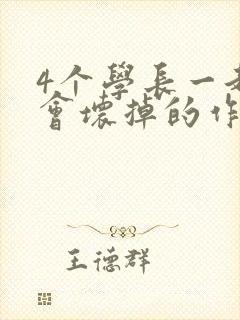 4个學長一
會壞掉的作
王德群